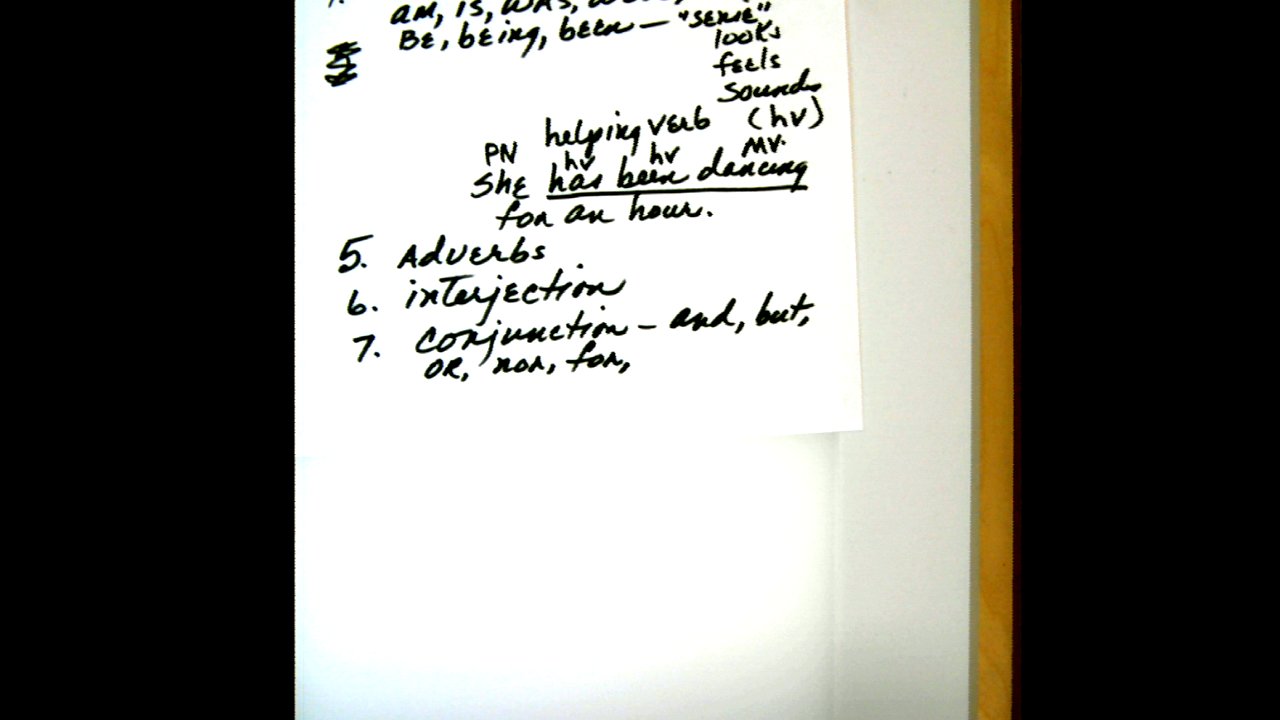 am, is, was,
BE, being, been — "sense"
looks
feels
sounds
helping verb (hv)
PN hv hv MV.
She has been dancing
for an hour.
5. Adverbs
6. interjection
7. conjunction – and, but,
OR, nor, for,